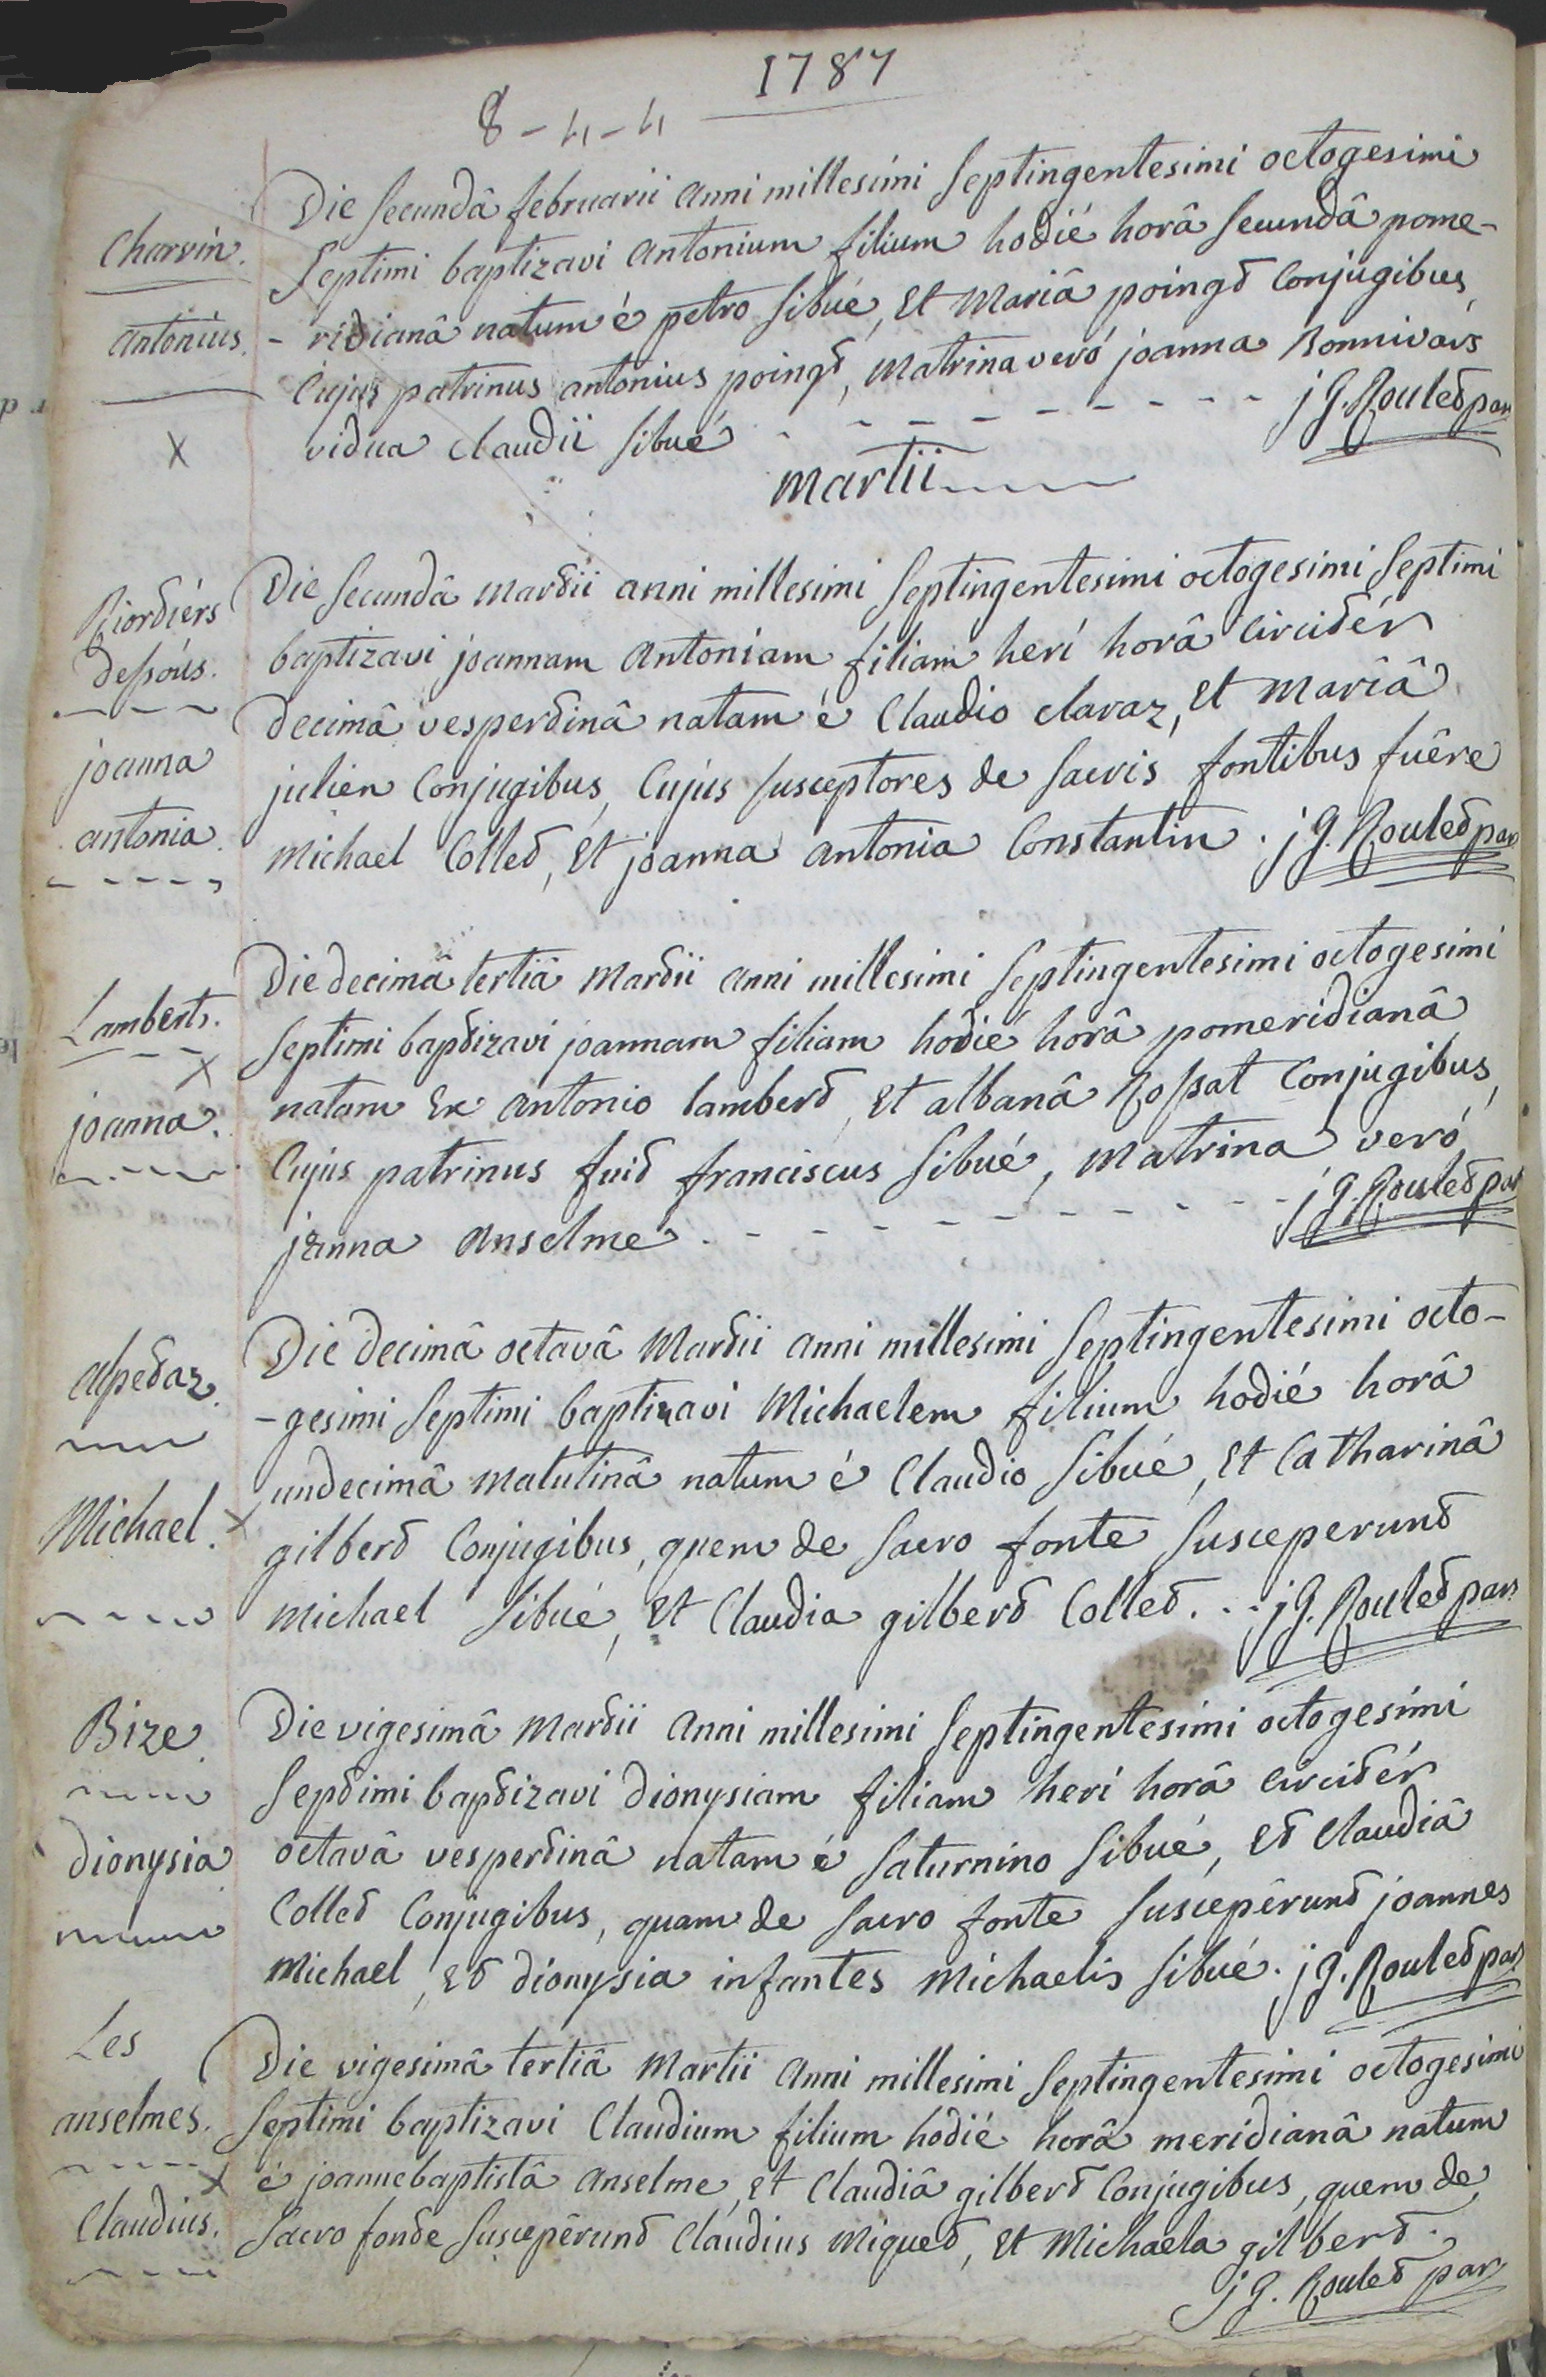 1787
8-4-4
Charvin.
antonius.
X
Die secundâ februarii anni millesimi septingentesimi octogesimi
septimi baptizavi antonium filium hodiè horâ secundâ pome-
-ridianâ natum è petro sibué, et mariâ poingt conjugibus,
cujus patrinus antonius poingt, matrina verò joanna Bonnivárs
vidua claudii sibué - - - - - - - - - j G. Roulet par
martii
Riortiérs
dessóus.
joanna
antonia.
Die secundâ martii anni millesimi septingentesimi octogesimi septimi
baptizavi joannam antoniam filiam herí horâ circitér
decimâ vespertinâ natam è claudio claraz, et mariâ
julien conjugibus, cujus susceptores de sacris fontibus fuêre
michael collet, et joanna antonia constantin. j G. Roulet par
Lambert.
X
joanna.
Die decimâ tertiâ martii anni millesimi septingentesimi octogesimi
septimi baptizavi joannam filiam hodiè horâ pomeridianâ
natam ex antonio lambert, et albanâ Rossat conjugibus,
cujus patrinus fuit franciscus sibué, matrina verò
joanna anselme. - - - - - - - - - j G. Roulet par
alpetaz.
Michael. X
Die decimâ octavâ martii anni millesimi septingentesimi octo-
-gesimi septimi baptizavi michaelem filium hodiè horâ
undecimâ matutinâ natum è claudio sibué, et catharinâ
gilbert conjugibus, quem de sacro fonte susceperunt
michael sibué, et claudia gilbert collet. - - j G. Roulet par
Bize
dionysia
Die vigesimâ martii anni millesimi septingentesimi octogesimi
septimi baptizavi dionysiam filiam herí horâ circitér
octavâ vespertinâ natam è saturnino sibué, et claudiâ
collet conjugibus, quam de sacro fonte suscepêrunt joannes
michael, et dionysia infantes michaelis sibué. j G. Roulet par
Les
anselmes.
X
Claudius.
Die vigesimâ tertiâ martii anni millesimi septingentesimi octogesimi
septimi baptizavi claudium filium hodiè horâ meridianâ natum
è joannebaptistâ anselme, et claudiâ gilbert conjugibus, quem de
sacro fonte suscepêrunt claudius miquet, et michaela gilbert.
j G. Roulet par